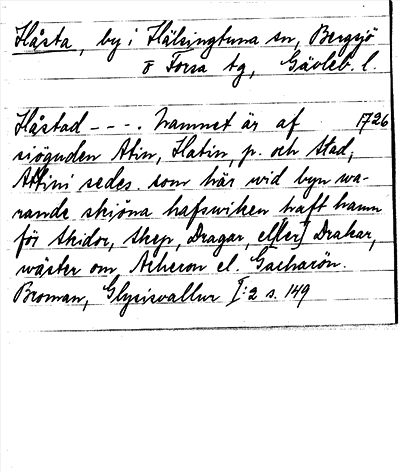 Håsta, by i Hälsingtuna sn, Bergsjö
o Forsa tg, Gävleb. l.
Håstad - - - . Namnet är af 1726
sjöguden Atin, Hatin, p. och Stad,
Attini sedes. som här wid byn wa-
rande skiöna hafswiken haft hamn
för Skidor, Skep, Dragar, el[ler] Drakar,
wäster om Acheron el. Gacharön.
Broman, Glysisvallur I:2 s. 149